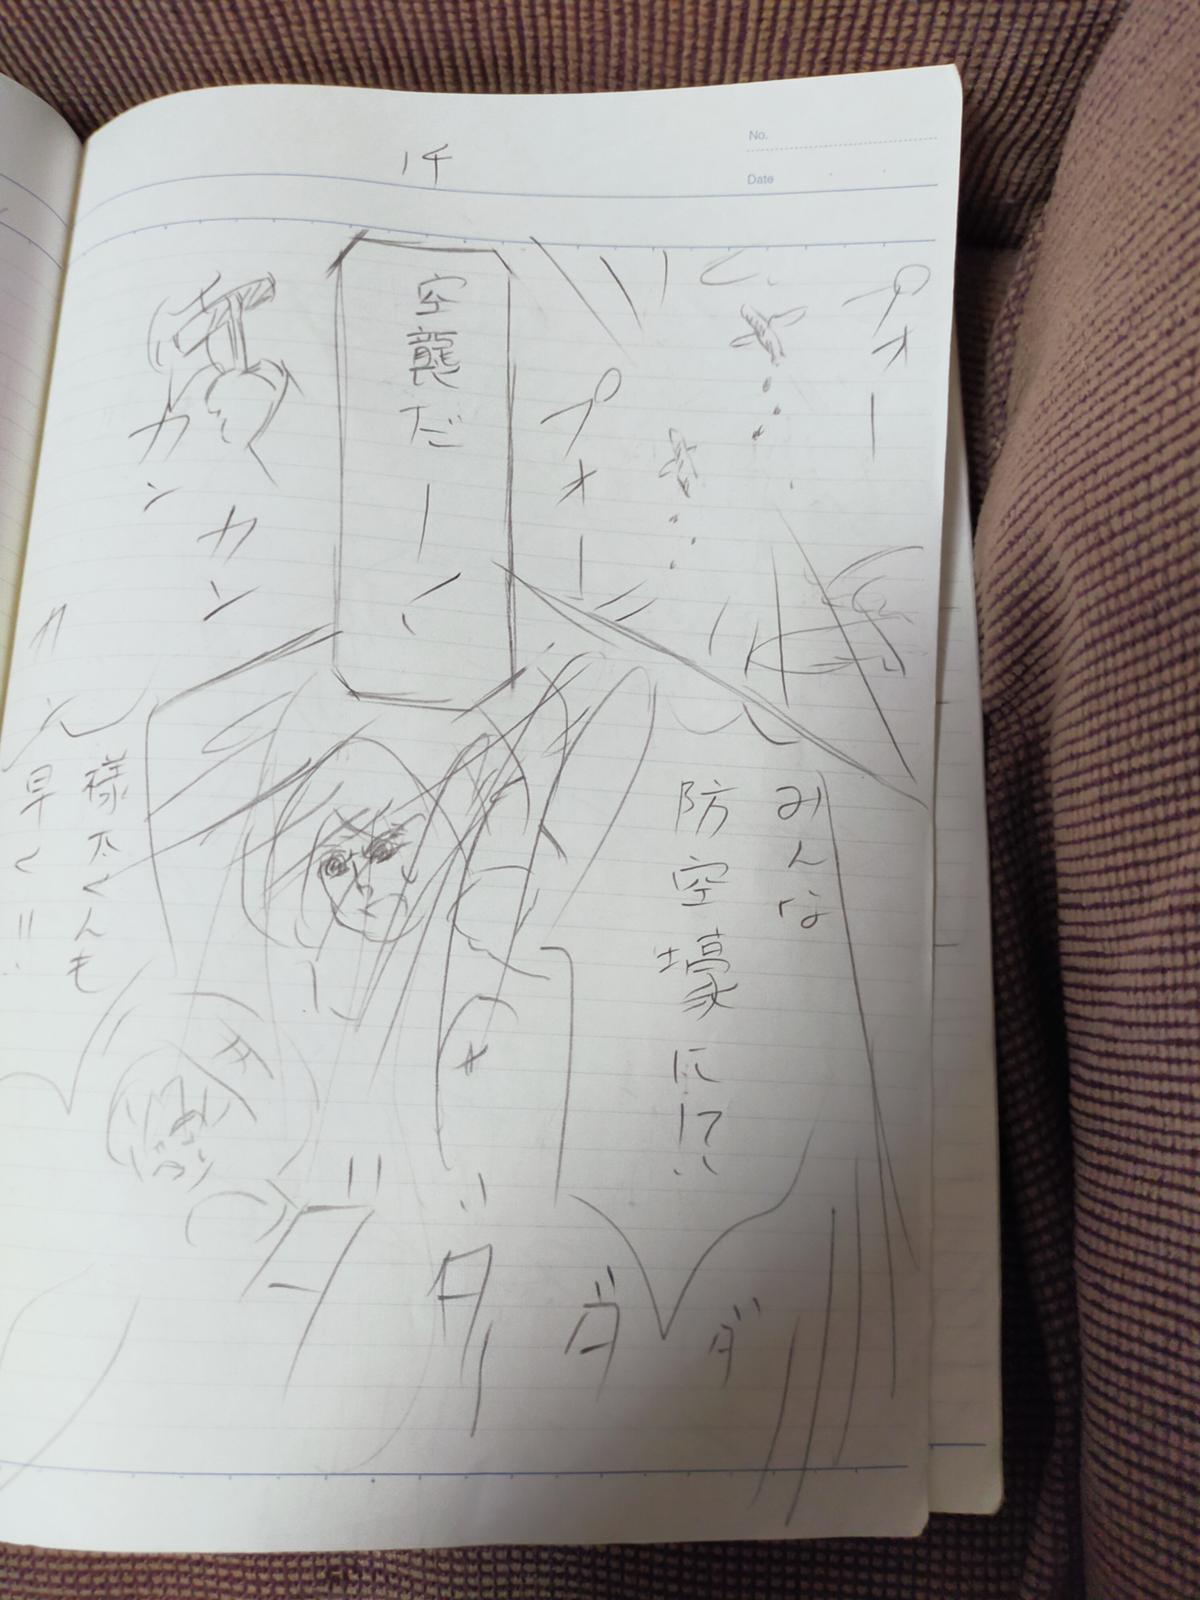 14
No.
Date
プォー
プォー
空襲だーく
カン
カン
カン
みんな
防空壕に!?
様太くんも
早く!!
ダダダダ